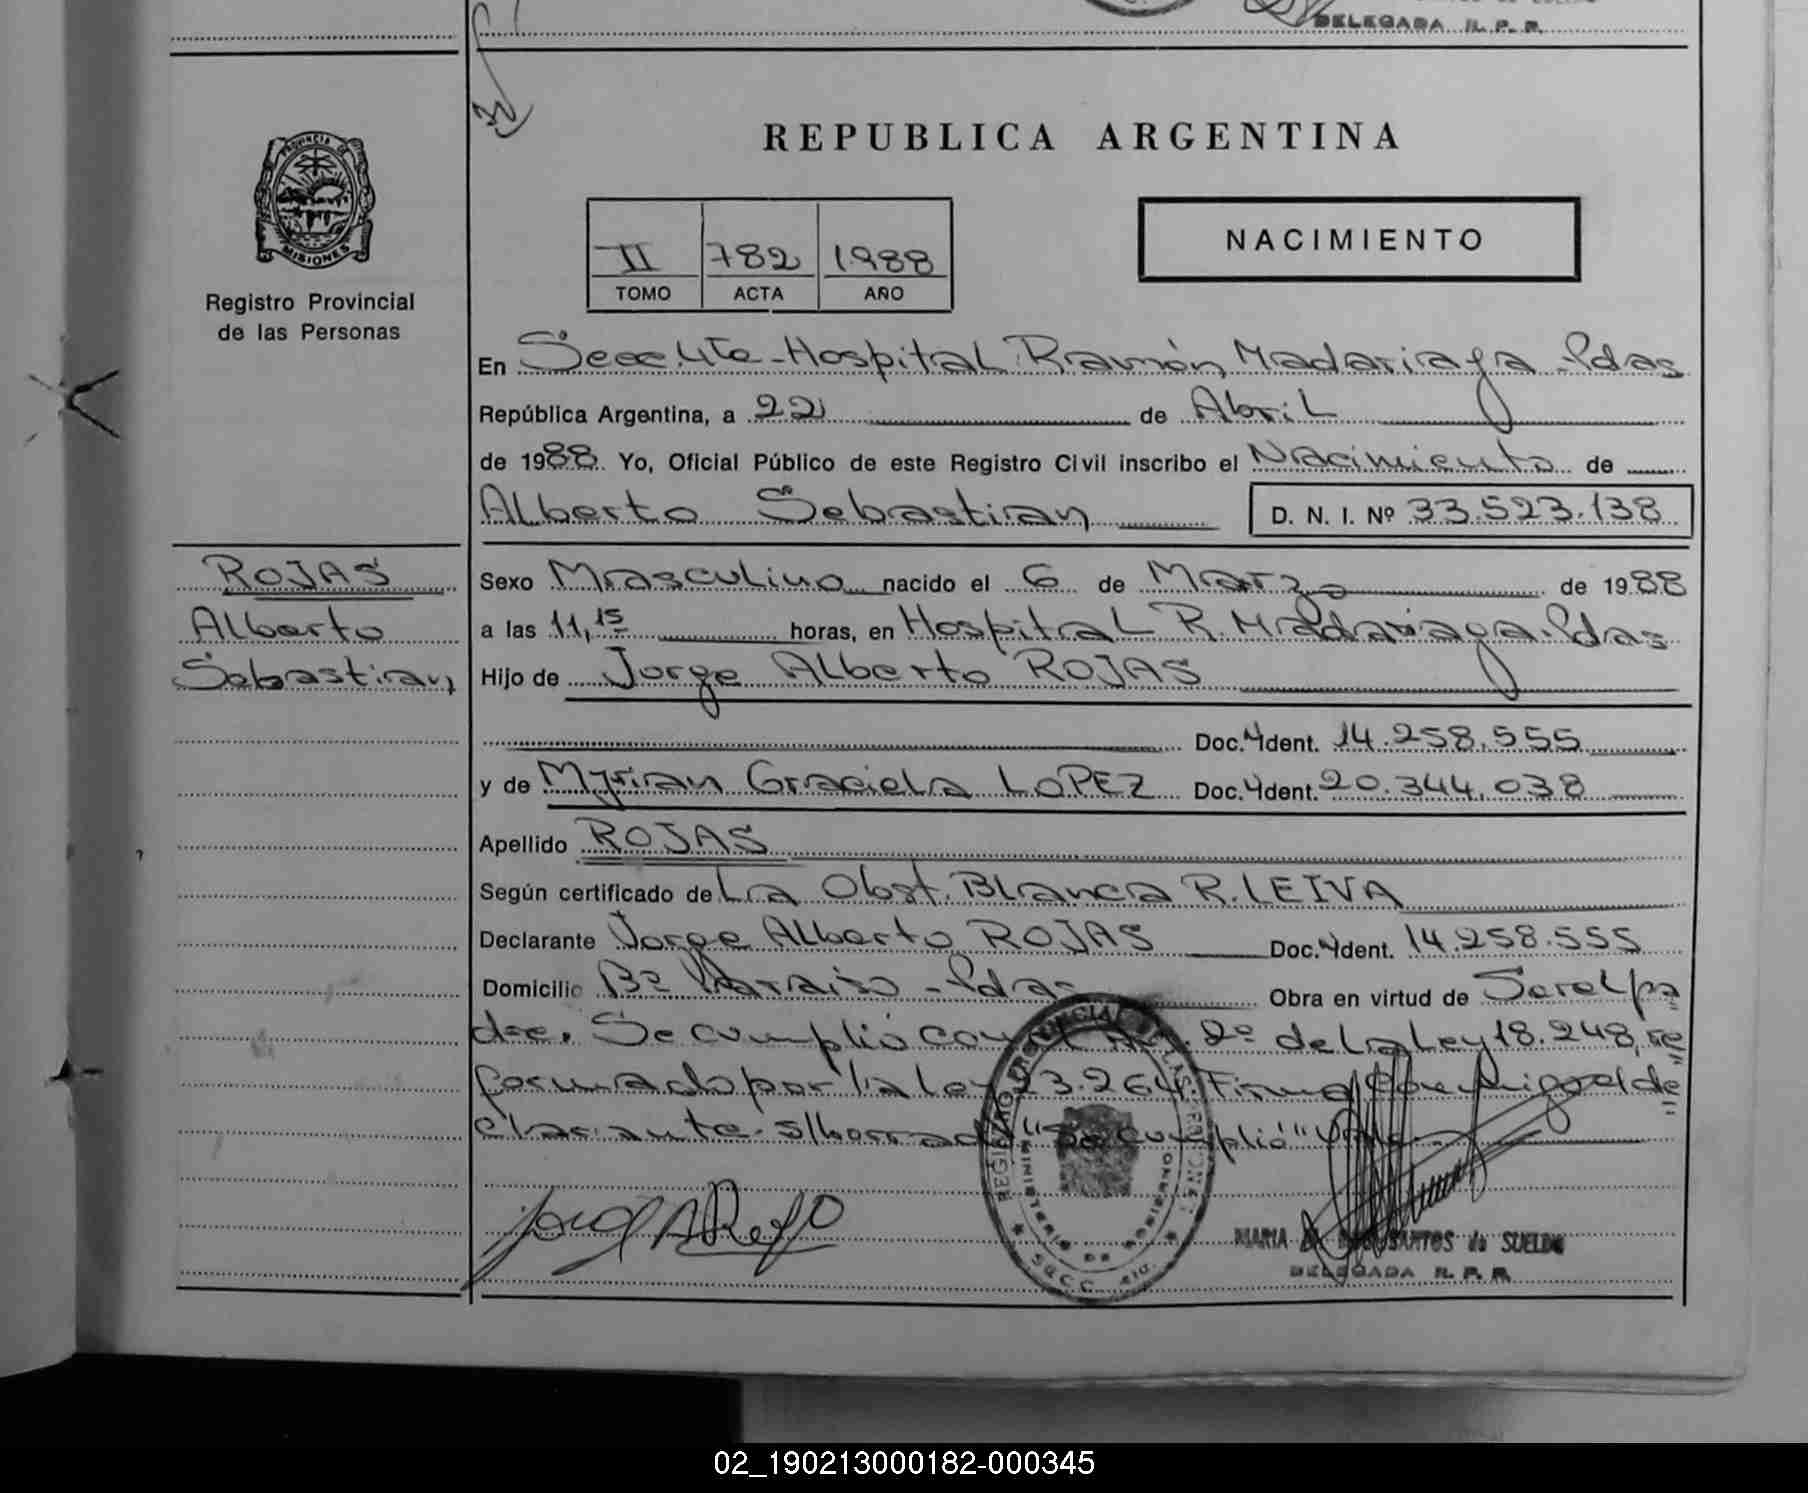 DELEGADA R. P. P.
REPUBLICA ARGENTINA
PROVINCIA DE
MISIONES
Registro Provincial
de las Personas
II 782 1988
TOMO ACTA AÑO
NACIMIENTO
En Secc. 4ta - Hospital Ramón Madariaga - Pdas
República Argentina, a 22 de Abril
de 1988. Yo, Oficial Público de este Registro Civil inscribo el Nacimiento de
Alberto Sebastian D. N. I. Nº 33.523.138
ROJAS
Alberto
Sebastian
Sexo Masculino nacido el 6 de Marzo de 1988
a las 11,15 horas, en Hospital R. Madariaga. Pdas
Hijo de Jorge Alberto ROJAS
Doc. Ident. 14.258.555
y de Myrian Graciela LOPEZ Doc. Ident. 20.344.038
Apellido ROJAS
Según certificado de La Obst. Blanca R. LEIVA
Declarante Jorge Alberto ROJAS Doc. Ident. 14.258.555
Domicilio Bº Paraiso - Pdas Obra en virtud de Ser el pa
dre. Se cumplió con el Art. 2º de la Ley 18.248, re
formado por la Ley 23.264 Firma conmigo el de
clarante. s/borrado "Se cumplió" Vale
REGISTRO PROVINCIAL DE LAS PERSONAS
MINISTERIO DE GOBIERNO
SECC. 4ta.
MARIA SANTOS de SUELDO
DELEGADA R. P. P.
02_190213000182-000345